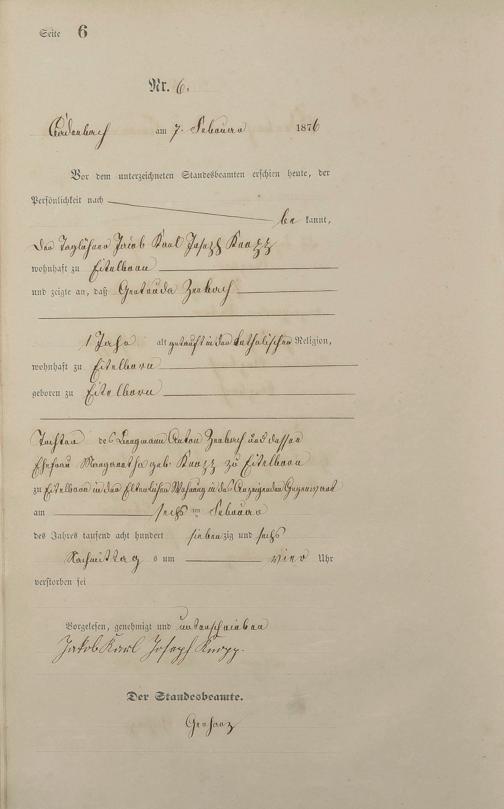 Seite 6
Nr. 6.
Cadenbach am 7. Februar 1876
Vor dem unterzeichneten Standesbeamten erschien heute, der
Persönlichkeit nach
be kannt,
der Taglöhner Jacob Karl Joseph Knopp
wohnhaft zu Eitelborn
und zeigte an, daß Gertruda Zerbach
1 Jahr alt getauft in der katholischen Religion,
wohnhaft zu Eitelborn
geboren zu Eitelborn
Tochter des Bergmann Anton Zerbach und dessen
Ehefrau Margaretha geb. Knopp zu Eitelborn
zu Eitelborn in der Elterlichen Wohnung in des Anzeigenden Gegenwart
am sechs ten Februar
des Jahres tausend acht hundert sieben zig und sechs
Nachmittag s um vier Uhr
verstorben sei
Vorgelesen, genehmigt und unterschrieben
Jakob Karl Joseph Knopp.
Der Standesbeamte.